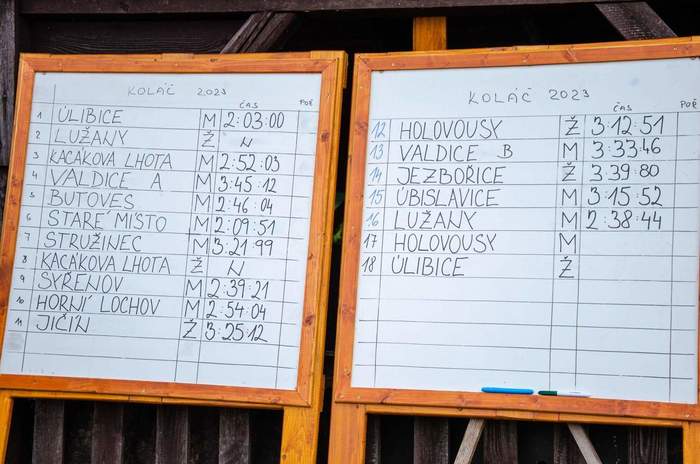 KOLÁČ 2023
ČAS POŘ
1 ÚLIBICE M 2:03:00
2 LUŽANY Ž N
3 KACÁKOVA LHOTA M 2:52:03
4 VALDICE A M 3:45:12
5 BUTOVES M 2:46:04
6 STARÉ MÍSTO M 2:09:51
7 STRUŽINEC M 3:21:99
8 KACÁKOVA LHOTA Ž N
9 SYŘENOV M 2:39:21
10 HORNÍ LOCHOV M 2:54:04
11 JIČÍN Ž 3:25:12
KOLÁČ 2023
ČAS POŘ
12 HOLOVOUSY Ž 3:12:51
13 VALDICE B M 3:33:46
14 JEZBOŘICE Ž 3:39:80
15 ÚBISLAVICE M 3:15:52
16 LUŽANY M 2:38:44
17 HOLOVOUSY M
18 ÚLIBICE Ž